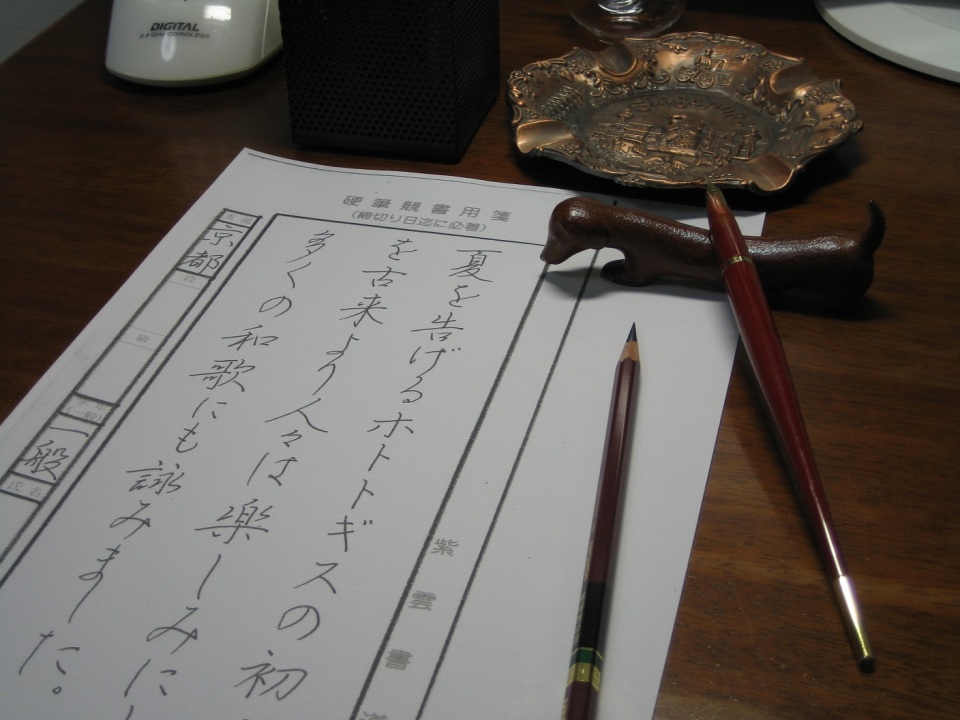 DIGITAL
2.4GHz CORDLESS
硬筆競書用箋
（締切り日迄に必着）
夏を告げるホトトギスの初
を古来より人々は楽しみにし
多くの和歌にも詠みました。
紫雲書道
支部
京都
段
級
一般
氏名